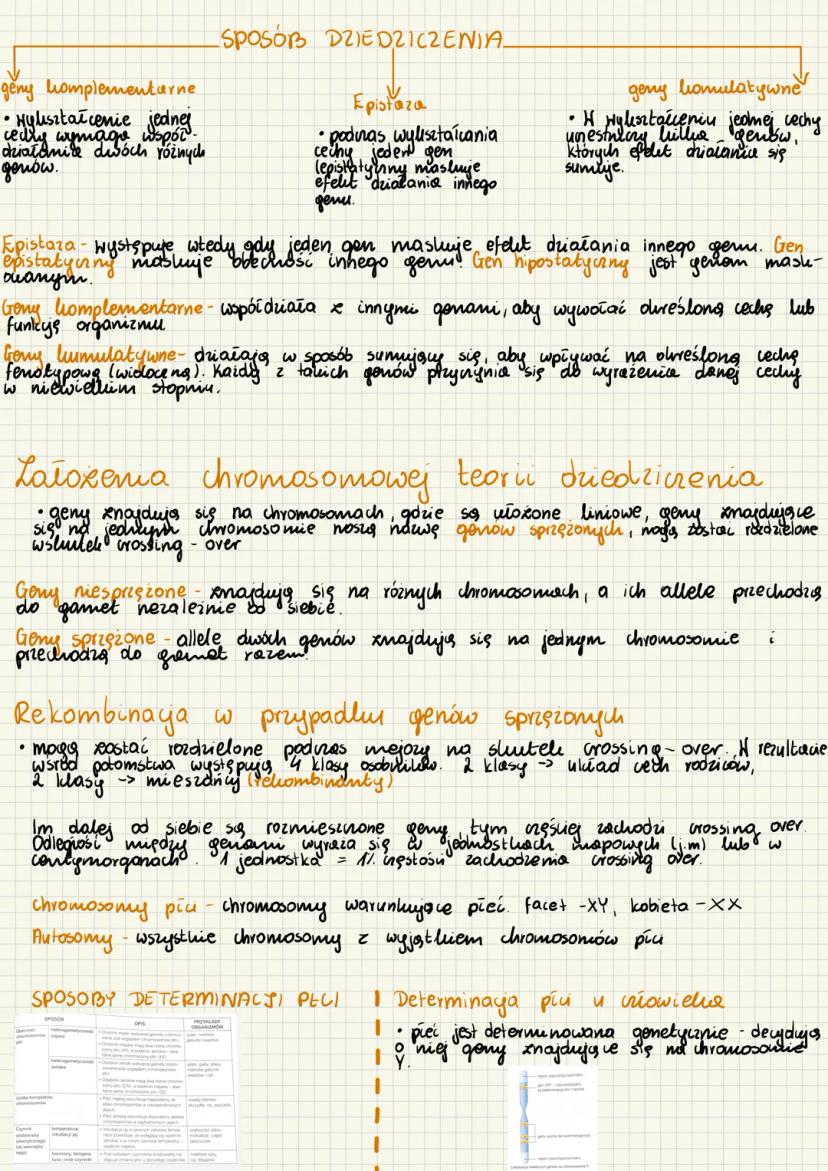 SPOSÓB DZIEDZICZENIA
geny komplementarne
• Wykształcenie jednej
cechy wymaga współ-
działania dwóch różnych
genów.
Epistaza
• podczas wykształcania
cechy jeden gen
(epistatyczny maskuje
efekt działania innego
genu.
geny kumulatywne
• W wykształceniu jednej cechy
uczestniczy kilka genów,
których efekt działania się
sumuje.
Epistaza - występuje wtedy gdy jeden gen maskuje efekt działania innego genu. Gen
epistatyczny maskuje obecność innego genu. Gen hipostatyczny jest genem mask-
owanym.
Geny komplementarne - współdziała z innymi genami, aby wywołać określoną cechę lub
funkcję organizmu
Geny kumulatywne - działają w sposób sumujący się, aby wpływać na określoną cechę
fenotypową (widoczną). Każdy z takich genów przyczynia się do wyrażenia danej cechy
w niewielkim stopniu.
Założenia chromosomowej teorii dziedziczenia
• geny znajdują się na chromosomach, gdzie są ułożone liniowe, geny znajdujące
się na jednym chromosomie noszą nazwę genów sprzężonych, mogą zostać rozdzielone
wskutek crossing-over
Geny niesprzężone - znajdują się na różnych chromosomach, a ich allele przechodzą
do gamet niezależnie od siebie.
Geny sprzężone - allele dwóch genów znajdują się na jednym chromosomie i
przechodzą do gamet razem.
Rekombinacja w przypadku genów sprzężonych
• mogą zostać rozdzielone podczas mejozy na skutek crossing-over. W rezultacie
wśród potomstwa występują 4 klasy osobników. 2 klasy -> układ cech rodziców,
2 klasy -> mieszańcy (rekombinanty)
Im dalej od siebie są rozmieszczone geny, tym częściej zachodzi crossing over.
Odległość między genami wyraża się w jednostkach mapowych (j.m) lub w
centymorganach. 1 jednostka = 1% częstości zachodzenia crossing over.
Chromosomy płci - chromosomy warunkujące płeć. facet - XY, kobieta - XX
Autosomy - wszystkie chromosomy z wyjątkiem chromosomów płci
SPOSOBY DETERMINACJI PŁCI
SPOSÓB OPIS PRZYKŁADY
ORGANIZMÓW
Determinacja płci u człowieka
• płeć jest determinowana genetycznie - decydują
o niej geny znajdujące się na chromosomie
Y.